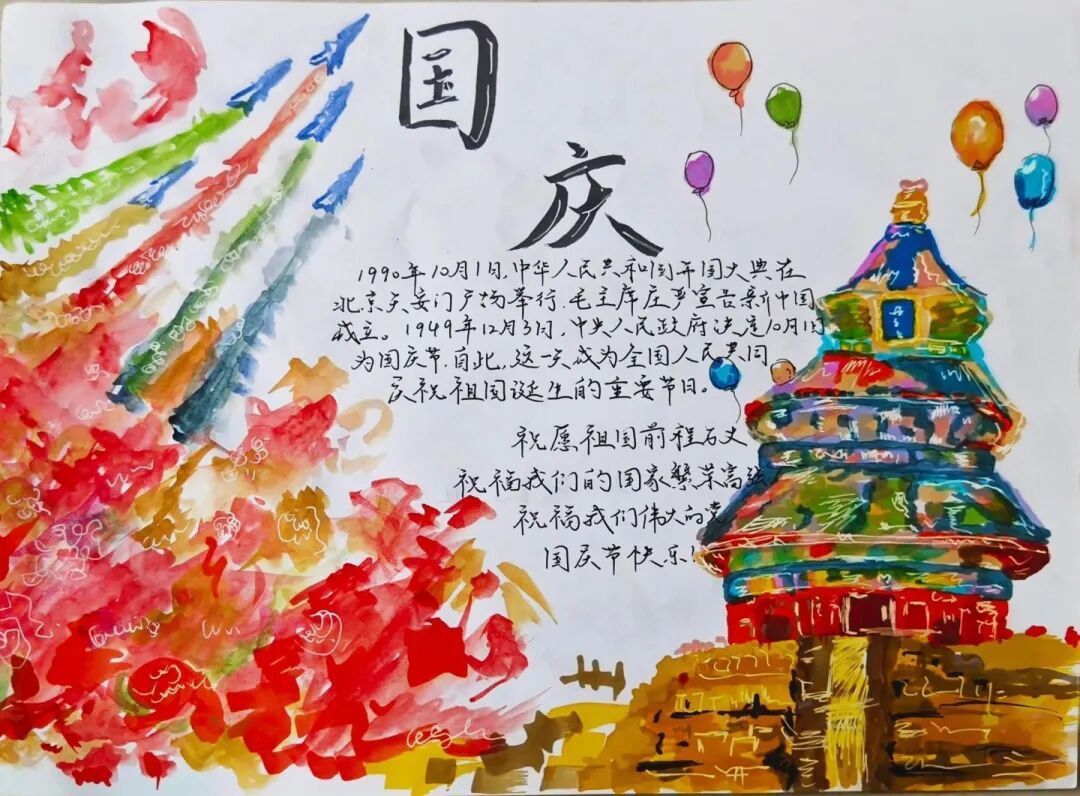 国
庆
1990年10月1日,中华人民共和国开国大典在
北京天安门广场举行.毛主席庄严宣告新中国
成立。1949年12月3日,中央人民政府决定10月1日
为国庆节.自此,这一天成为全国人民共同
庆祝祖国诞生的重要节日。
祝愿祖国前程石义
祝福我们的国家繁荣富强
祝福我们伟大的党
国庆节快乐!